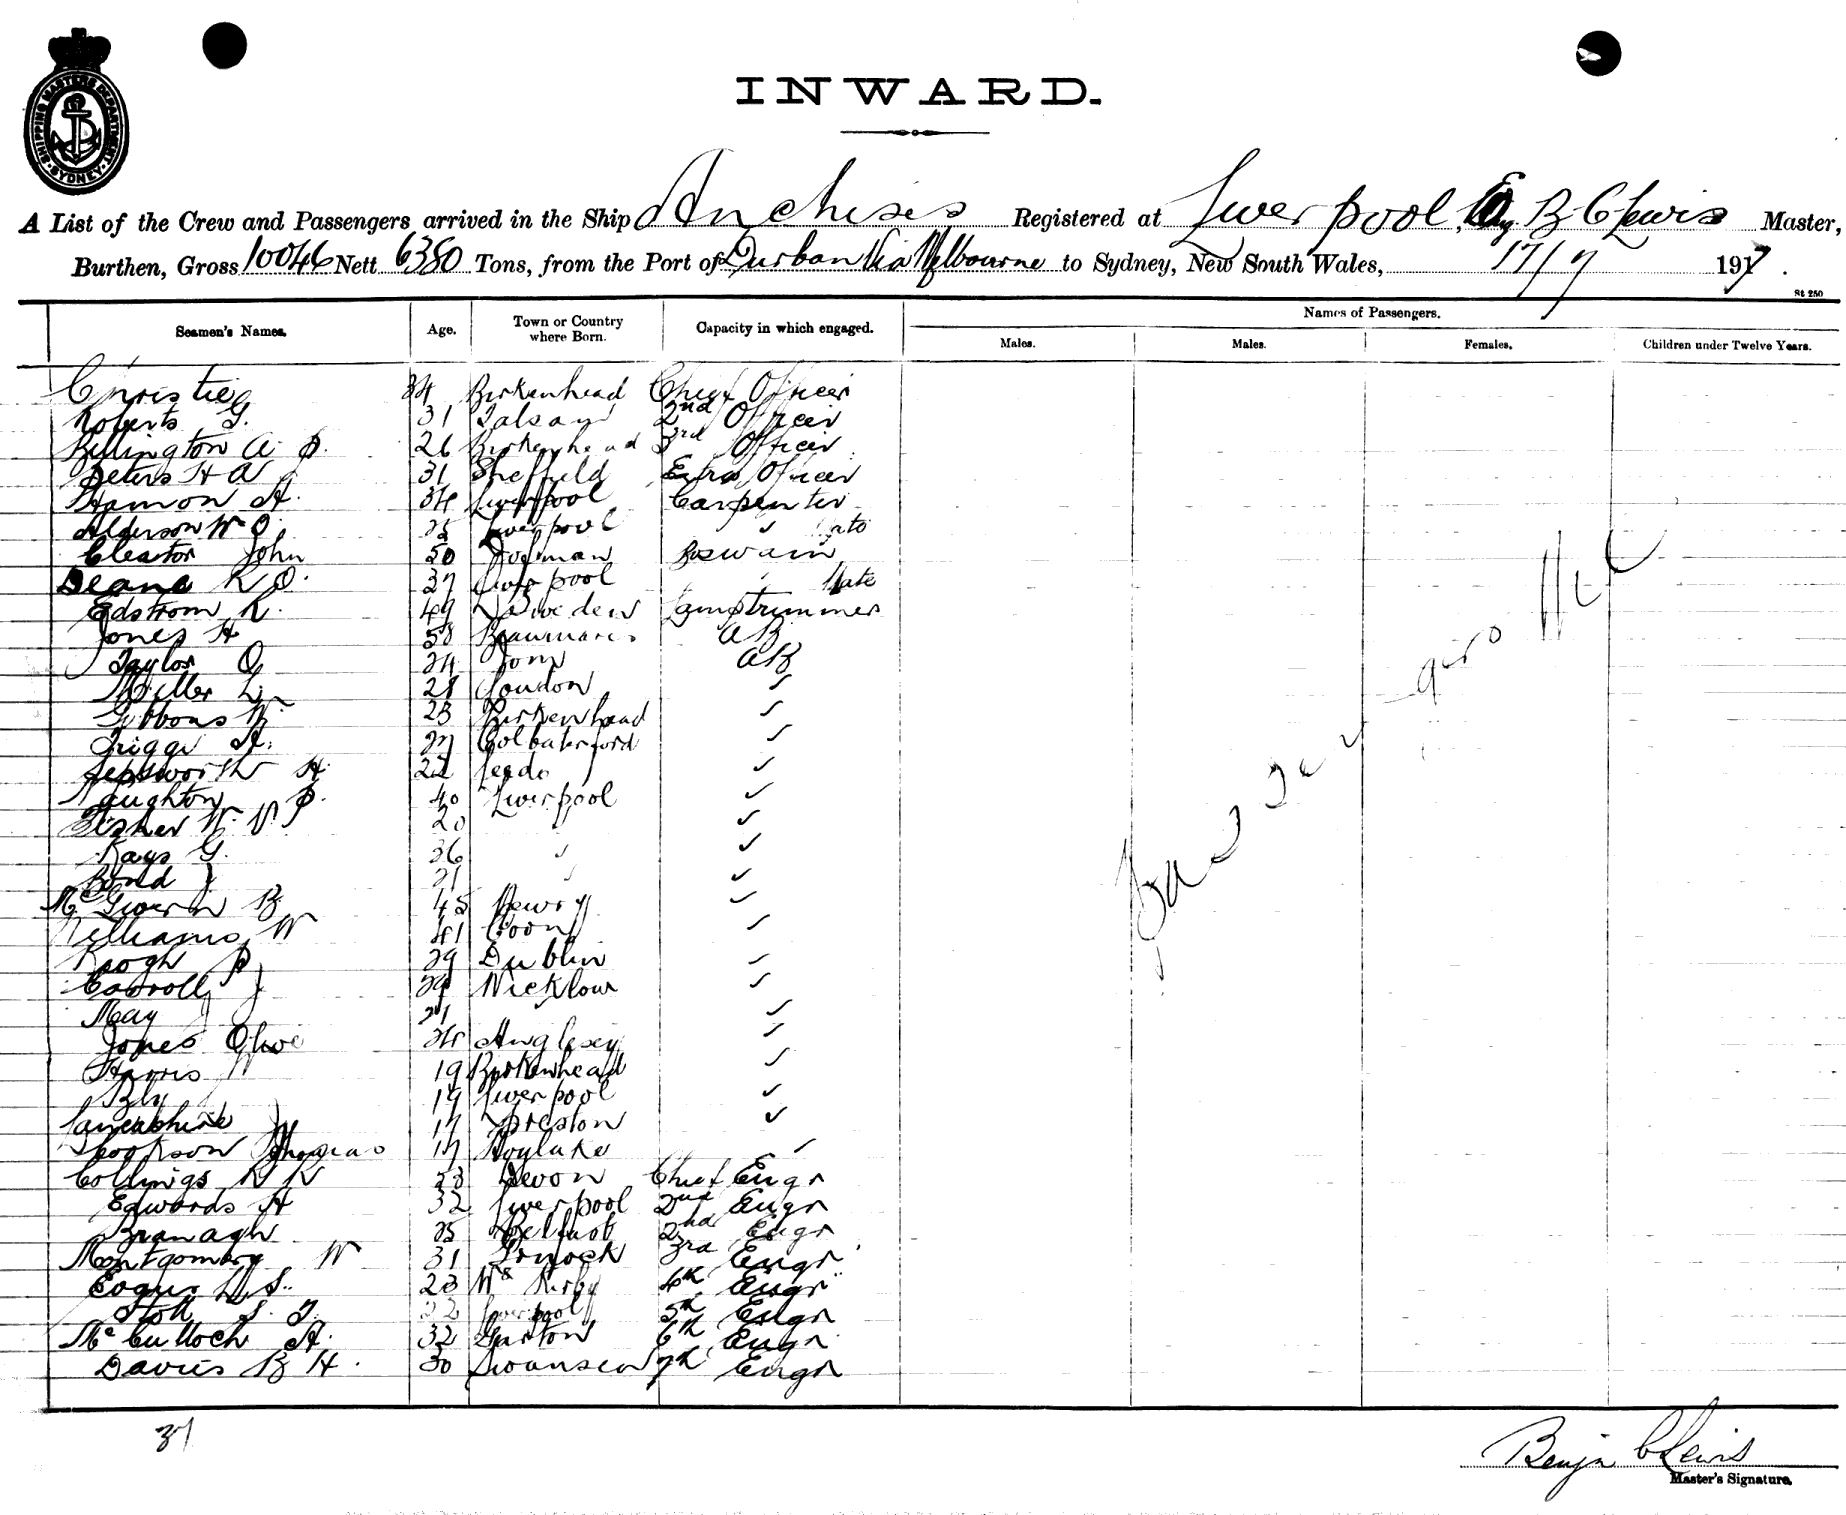 SHIPPING MASTERS DEPARTMENT SYDNEY
INWARD.
A List of the Crew and Passengers arrived in the Ship Anchises Registered at Liverpool, B C Lewis Master,
Burthen, Gross 10046 Nett 6380 Tons, from the Port of Durban Via Melbourne to Sydney, New South Wales, 17/7 1917.
St 250
Seamen's Names. Age. Town or Country where Born. Capacity in which engaged. Names of Passengers.
Males. Males. Females. Children under Twelve Years.
Christie 34 Birkenhead Chief Officer
Roberts G. 31 Talsarn 2nd Officer
Billington A P. 26 Birkenhead 3rd Officer
Peters H A 31 Sheffield Extra Officer
Hamon A. 34 Liverpool Carpenter
Alderson W O. 25 Liverpool ✓ Mate
Cleator John 50 Iofman Boswain
Deane R O. 37 Liverpool Mate
Edstrom K. 49 Sweden Lamptrimmer
Jones H 58 Beaumaris AB
Taylor O 24 Iom AB
Miller L 28 London ✓
Gibbons W. 23 Birkenhead ✓
Triggs A. 27 ✓
Jepsworth H. 22 Leeds ✓
Naughton P. 40 Liverpool ✓
Fisher W. V. 20 ✓
Kays G. 36 ✓ ✓
Bond J 21 ✓ ✓
Mc Givern B 45 Newry ✓
Williams W 41 ✓
Keogh P 29 Dublin ✓
Carroll J 29 Wicklow ✓
May J 21 ✓
Jones Olive 24 Anglesey ✓
Harris W 19 Birkenhead ✓
Bly 19 Liverpool ✓
Lancashire 17 Preston ✓
Thomas 17 Hoylake ✓
Collings R K 53 Devon Chief Engr
Edwards H 32 Liverpool 2nd Engr
Branagh 35 Belfast 2nd Engr
Montgomery W 31 Grnock 3rd Engr
L S. 23 Wt Kirby 4th Engr
Stott S. T. 22 Liverpool 5th Engr
Mc Culloch A. 32 Garston 6th Engr
Davies B H. 30 Swansea 7th Engr
Passengers Nil
37
Benjn C Lewis
Master's Signature.